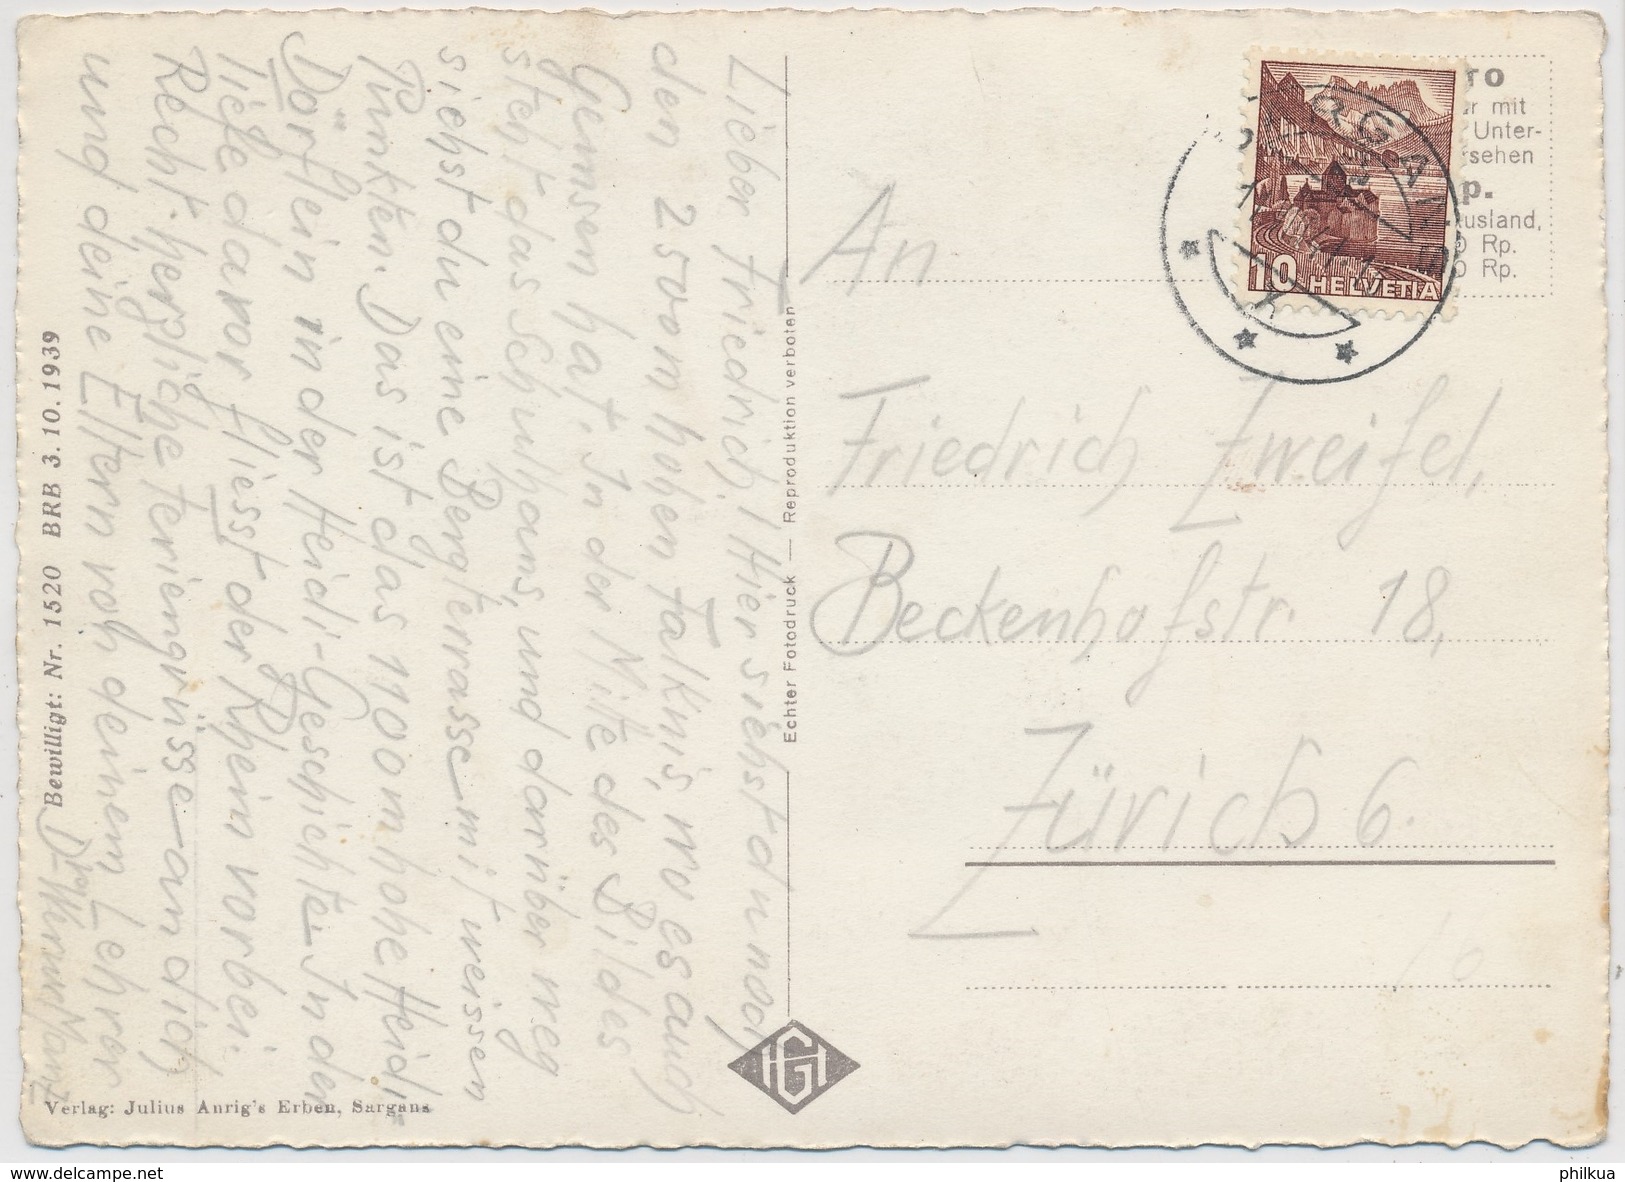 Lieber Friedrich! Hier siehst du noch
den 2500m hohen Falknis, wo es auch
Gemsen hat. In der Mitte des Bildes
steht das Schulhaus, und darüber weg
siehst du eine Bergterrasse mit weissen
Punkten. Das ist das 1100m hohe Heidi-
Dörflein in der Heidi-Geschichte. In der
Tiefe davor fliesst der Rhein vorbei.
Recht herzliche Feriengrüsse an dich,
und deine Eltern von deinem Lehrer
Bewilligt: Nr. 1520 BRB 3. 10. 1939
Verlag: Julius Anrig's Erben, Sargans
Echter Fotodruck — Reproduktion verboten
HG
An
Friedrich Zweifel,
Beckenhofstr. 18,
Zürich 6.
10 HELVETIA
SARGANS
ro
mit
Unter-
rsehen
p.
usland,
Rp.
0 Rp.
10
www.delcampe.net
philkua